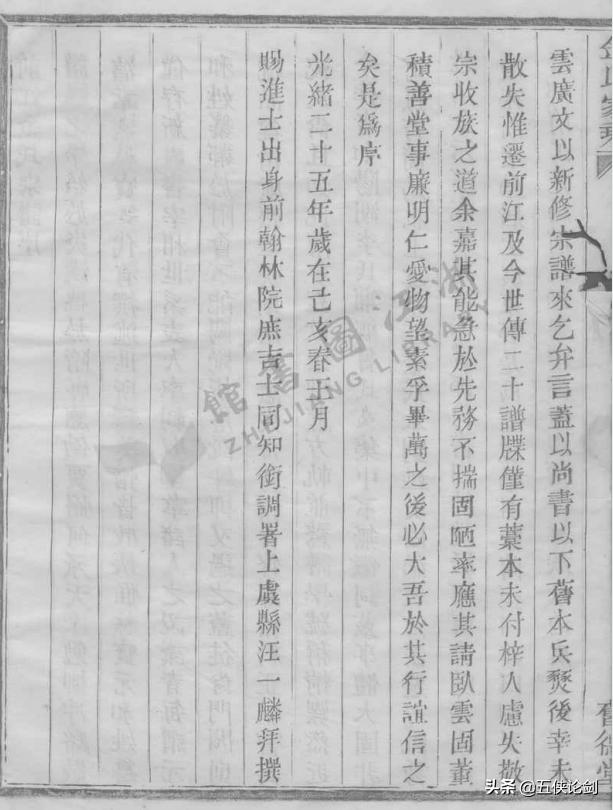 雲廣文以新修宗譜來乞弁言蓋以尚書以下舊本兵燹後幸未
散失惟遷前江及今世傳二十譜牒僅有藁本未付梓人慮失敬
宗收族之道余嘉其能急於先務不揣固陋率應其請臥雲固董
積善堂事廉明仁愛物望素孚畢萬之後必大吾於其行誼信之
矣是爲序
光緒二十五年歲在己亥春王月
賜進士出身前翰林院庶吉士同知銜調署上虞縣汪一麟拜撰
浙江圖書館
ZHEJIANG LIBRARY
头条 @五侠论剑